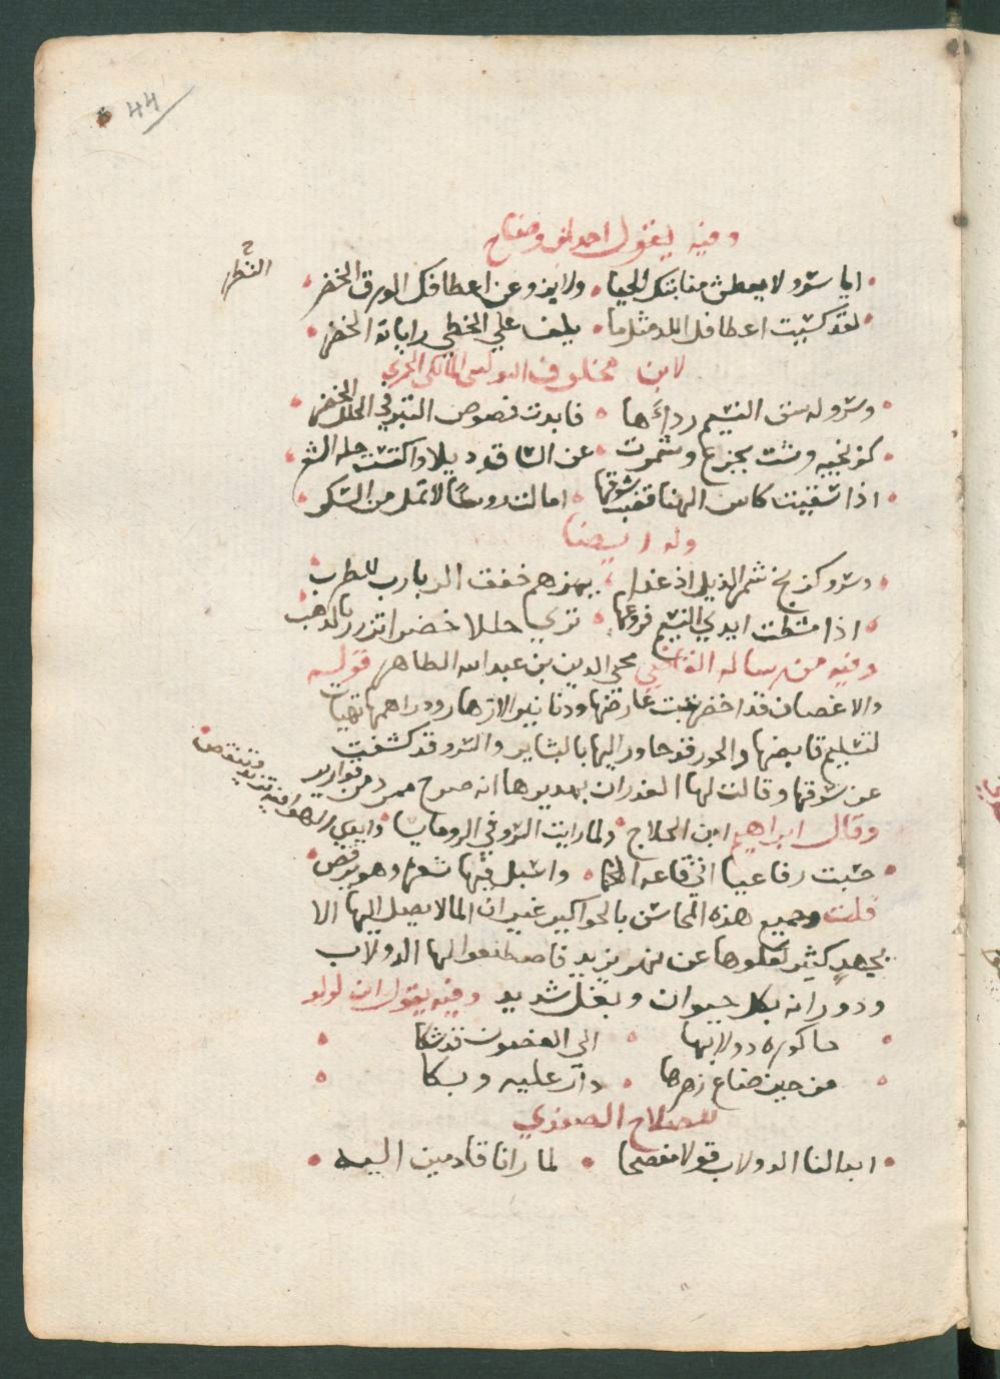 44
وفيه يقول احد بن وضاح
ايا سرو لا يعطش منابتك الحيا • ولا يزو عن اعطافك الورق الخضر •
القطر
لقد كسيت اعطافك الملد مثل ما • يلف علي الخطي راياته الخضر •
لابن مخلوف المالكي
• وسرو له سق النسيم رداءها • فابدت فصوص التبر في الحلل الخضر •
وشت بجزع وشمرت • عن الساق ذيلا واكتست حله
• اذا سقيت كاس الهنا قضب سوقها • امالت روسًا لا تمل من السكر •
وله ايضا
شمر الذيل اذ غدا • يهزهم خفق الربارب للطرب •
• اذا مشطت ايدي النسيم فروعها • تري حللا خضرا تزرر بالذهب
وفيه من رساله القاضي محي الدين بن عبد الله الطاهر قوله
والاغصان قد اخضر نبت عارضها ودنانير الازهار ودراهمها تهيات
لتسليم قابضها والحور قد جا ورايها بالبشاير والسرو قد كشفت
عن سوقها وقالت لها الغدران بهديرها انه صرح ممرد من قوارير
وقال ابراهيم ابن الحلاج • ولما رايت السرو في الروض مايسا • وايدي الهوا فيه تزيد وتنقص •
• حسبت رفاعيا اتي قاعه الحما • واسبل فيها شعره وهو يرقص •
قلت وجميع هذه المحاسن بالحواكير غير ان الما لا يصل اليها الا
بجهد كثير لعلوها عن نهر يزيد فاصطنعوا لها الدولاب
ودورانه بكل حيوان وبغل شديد وفيه يقول ابن لولو
• حاكوره دولابها • الي الغصون قد شكا •
• من حين ضاع زهرها • دار عليه وبكا •
للصلاح الصفدي
• ابدا لنا الدولاب قولا مفصحا • لما رانا قادمين اليه •